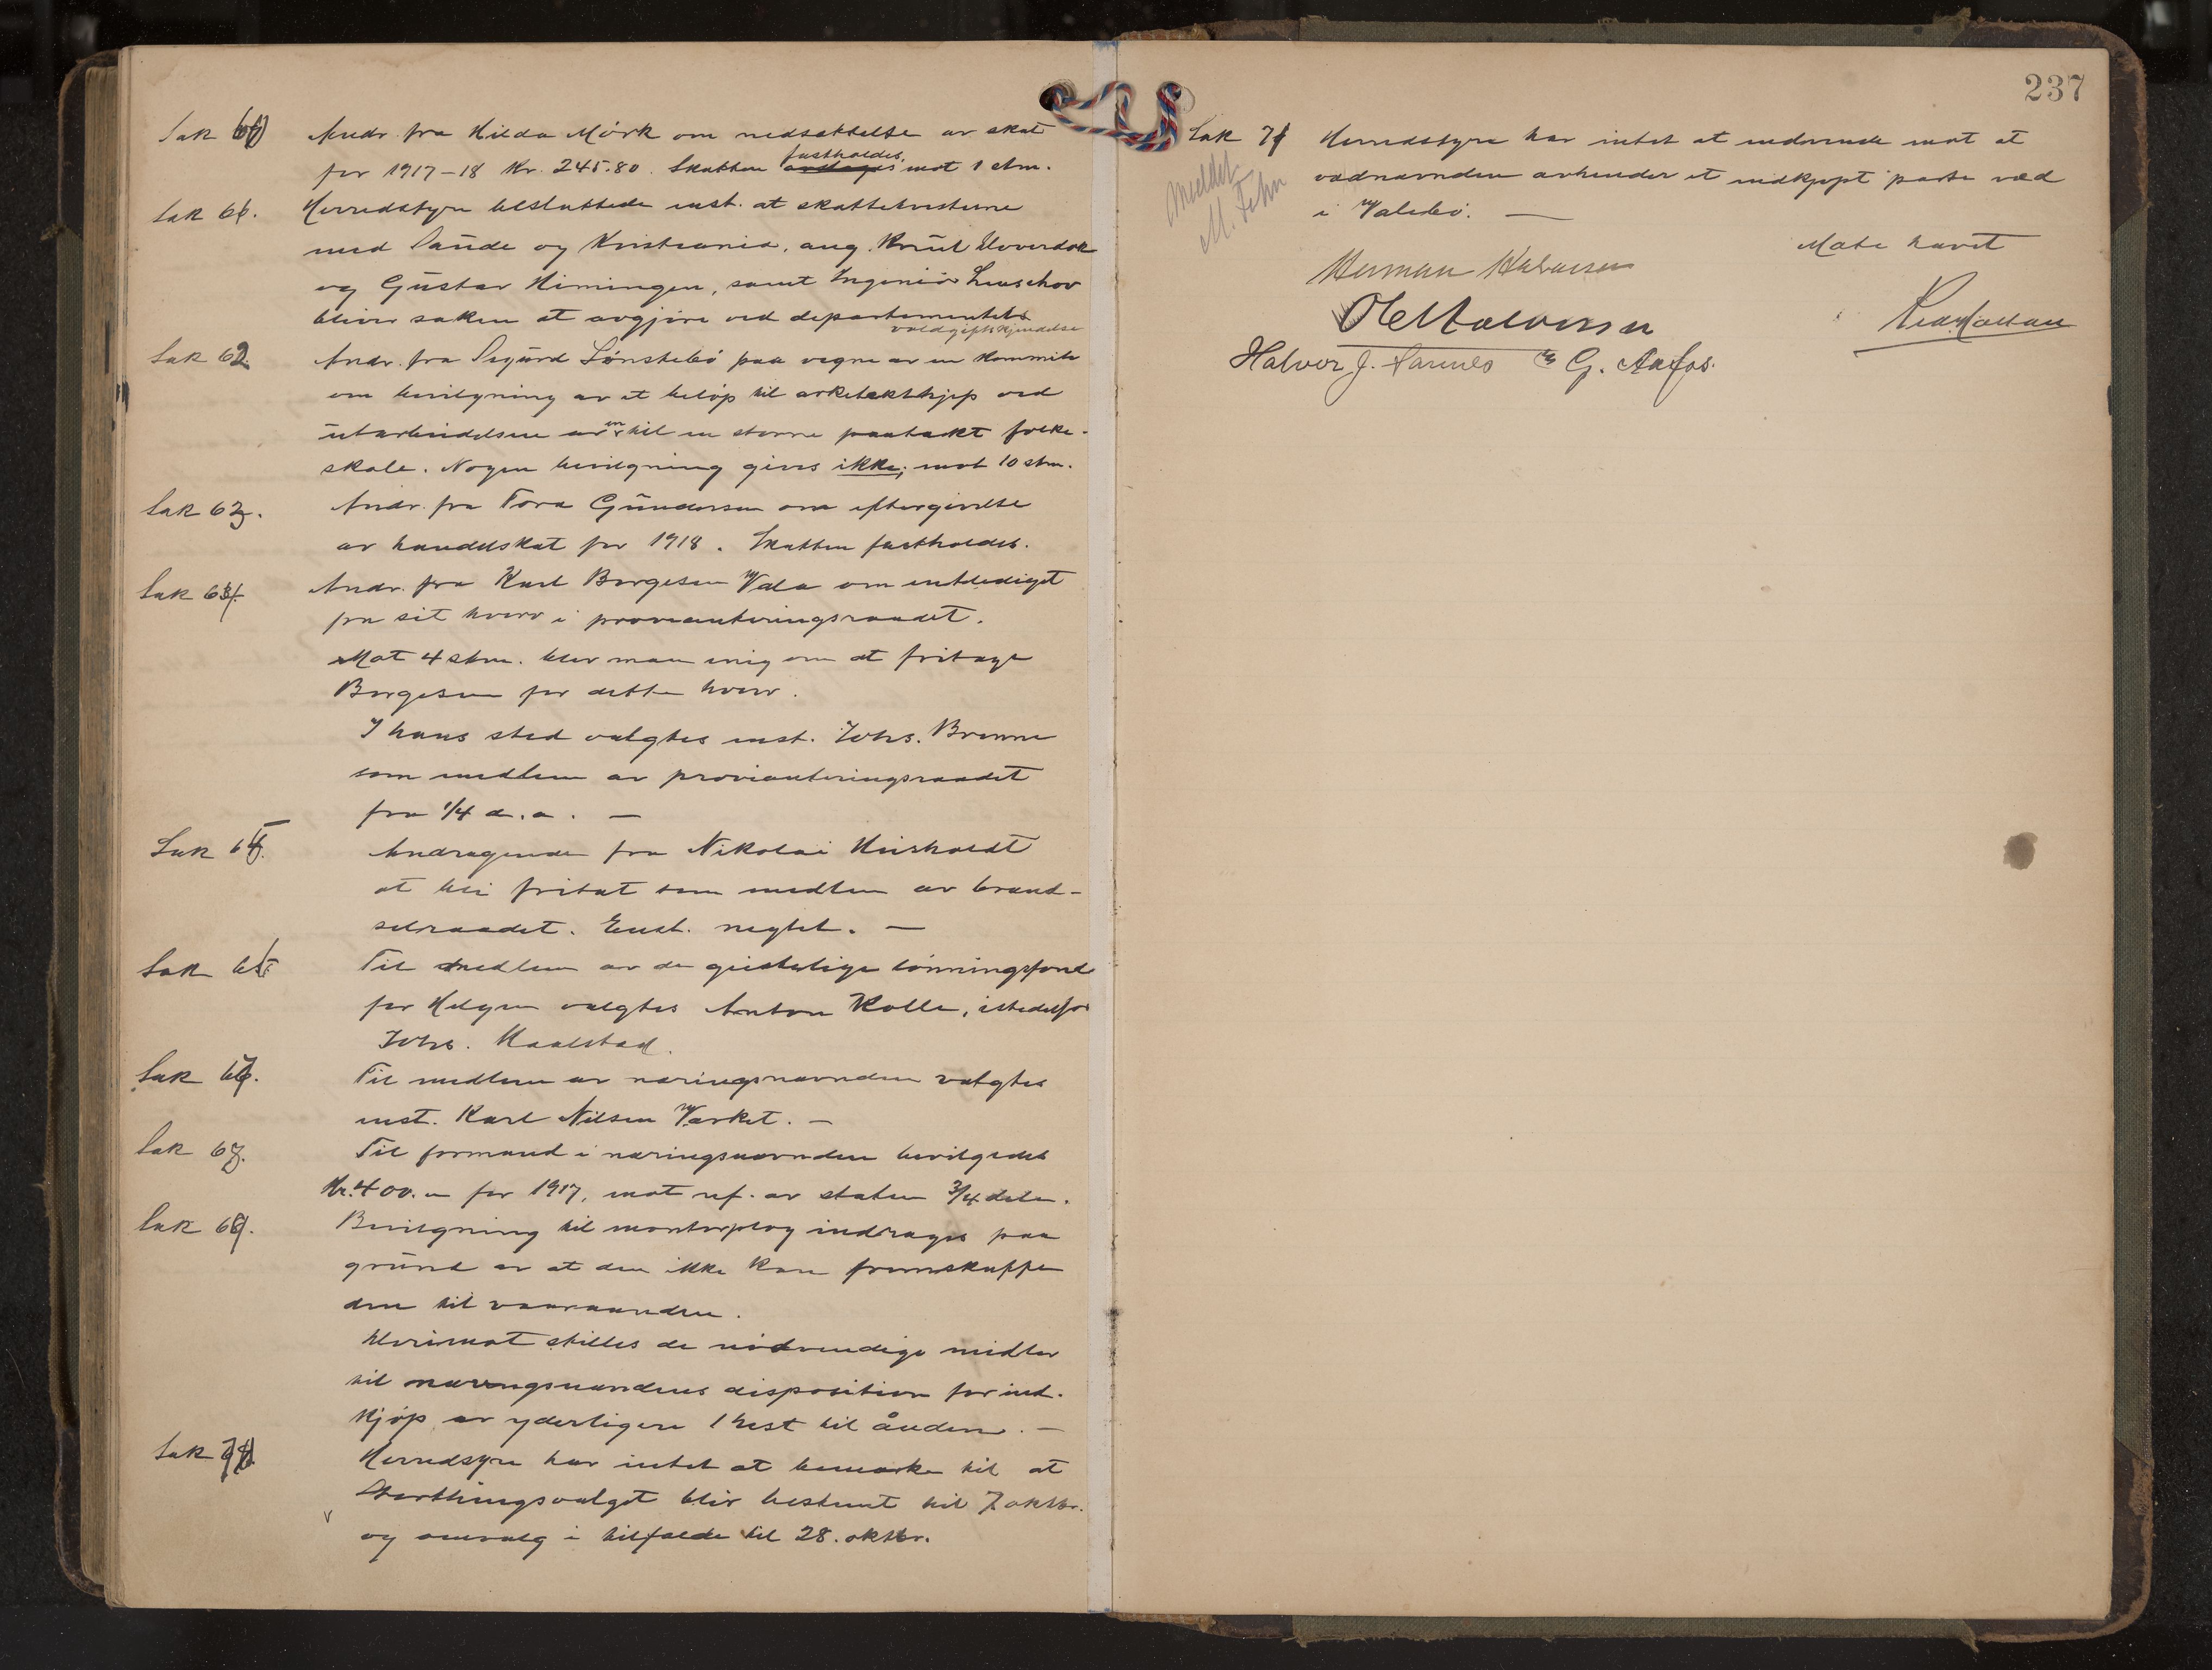 Sak 60 Andr. fra Hilda Mörk om nedsættelse av skat
for 1917-18 Kr. 245.80. Skatten fastholdes mot 1 stm.
Sak 61. Herredstyre besluttede enst. at skattetvisterne
med Saude og Kristiania, ang. Knut Hoverdok
og Gustav Himingen, samt Ingeniör
blir saken at avgjöre ved departementets
voldgiftskjendelse
Sak 62 Andr. fra Sigurd Lönstebö paa vegne av en Kommite
om bevilgning av et belöp til arketekthjælp ved
utarbeidelsen av en til en större paatækt folke-
skole. Nogen bevilgning gives ikke; mot 10 stm.
Sak 63. Andr. fra Tora Gundersen om eftergivelse
av handelskat for 1918. Skatten fastholdes.
Sak 64. Andr. fra Karl Borgesen Vala om entlediget
fra sit hverv i provianteringsraadet.
Mot 4 stm. blev man enig om at fritage
Borgesen for dette hverv.
I hans sted valgtes enst. Johs. Brenne
som medlem av provianteringsraadet
fra 1/4 d.a. —
Sak 65. Andragende fra Nikolai Heisholdt
at bli fritat som medlem av brænd-
selraadet. Enst. negtet. —
Sak 66 Til medlem av de geistelige lönningsfond
for Helgen valgtes Anton Kolle, istedetfor
Johs. Kaalstad.
Sak 67. Til medlem av næringsnævnden valgtes
enst. Karl Nilsen Værket. —
Sak 68. Til formand i næringsnævnden bevilgedes
Kr. 400.- for 1917, mot ref. av staten 3/4 delen.
Sak 69. Bevilgning til montorplog inddrages paa
grund av at den ikke kan fremskaffe
den til vaaraanden.
Herimot stilles de nödvendige midler
til næringsnævndens disposition for ind-
kjöp av yderligere 1 hest til ånden. —
Sak 70 Herredsyre har intet at bemærke til at
Storthingsvalget blir bestemt til 7 oktbr.
v og omvalg i tilfælde til 28. oktbr.
237
Sak 71 Herredstyre har intet at indvende mot at
vednævnden avhender et indkjöpt parti ved
i Valebö. —
Meddelt
M. Fehn
Möte hævet
Herman Halvorsen
O Halvorsen
Halvor J. Aarnes G. Aafos.